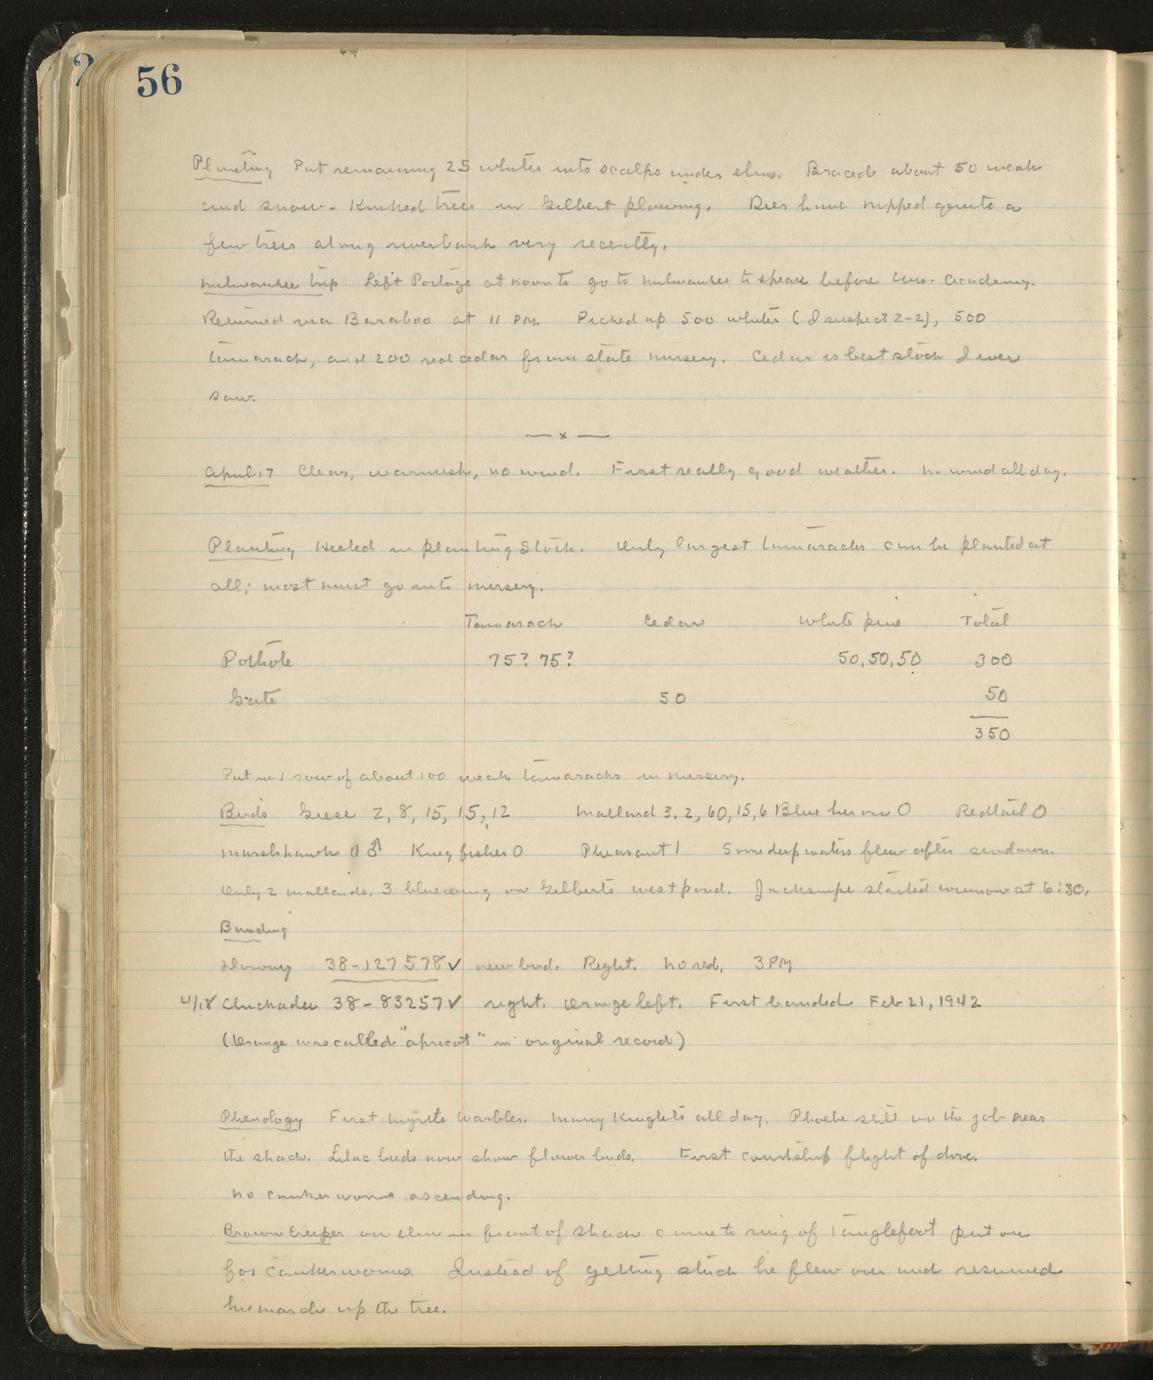 56
Planting Put remaining 25 whites into scalps under elms. Braced about 50 weak
and snow-kinked trees in Gilbert plowing. Deer have nipped quite a
few trees along riverbank very recently.
Milwaukee trip Left Portage at noon to go to Milwaukee to speak before Wis. Academy.
Returned via Baraboo at 11 PM. Picked up 500 whites (I suspect 2-2), 500
tamarack, and 200 red cedar from state nursery. Cedar is best stock I ever
saw.
— x —
April 17 Clear, warmish, no wind. First really good weather. No wind all day.
Planting Heeled in planting stock. Only largest tamaracks can be planted at
all; most must go into nursery.
Tamarack Cedar White pine Total
Pothole 75? 75? 50, 50, 50 300
Gate 50 50
350
Put in 1 row of about 100 weak tamaracks in nursery.
Birds Geese 2, 8, 15, 15, 12 Mallard 3, 2, 60, 15, 6 Blue heron 0 Redtail 0
Marsh hawk ♂ Kingfisher 0 Pheasant 1 Some dup waters flew after sundown.
Only 2 mallards, 3 bluewing on Gilberts west pond. Jacksnipe started winnow at 6:30.
Banding
Downy 38-127578 ✓ new bird. Right. No red. 3 PM
4/18 Chickadee 38-83257 ✓ right. Orange left. First banded Feb 21, 1942
(Orange was called "apricot" in original record)
Phenology First myrtle warbler. Many Kinglets all day. Phoebe still on the job near
the shack. Lilac buds now show flower buds. First courtship flight of dove.
No cankerworms ascending.
Brown Creeper on elm in front of shack came to ring of tanglefoot put on
for cankerworms. Instead of getting stuck he flew over and resumed
his march up the tree.